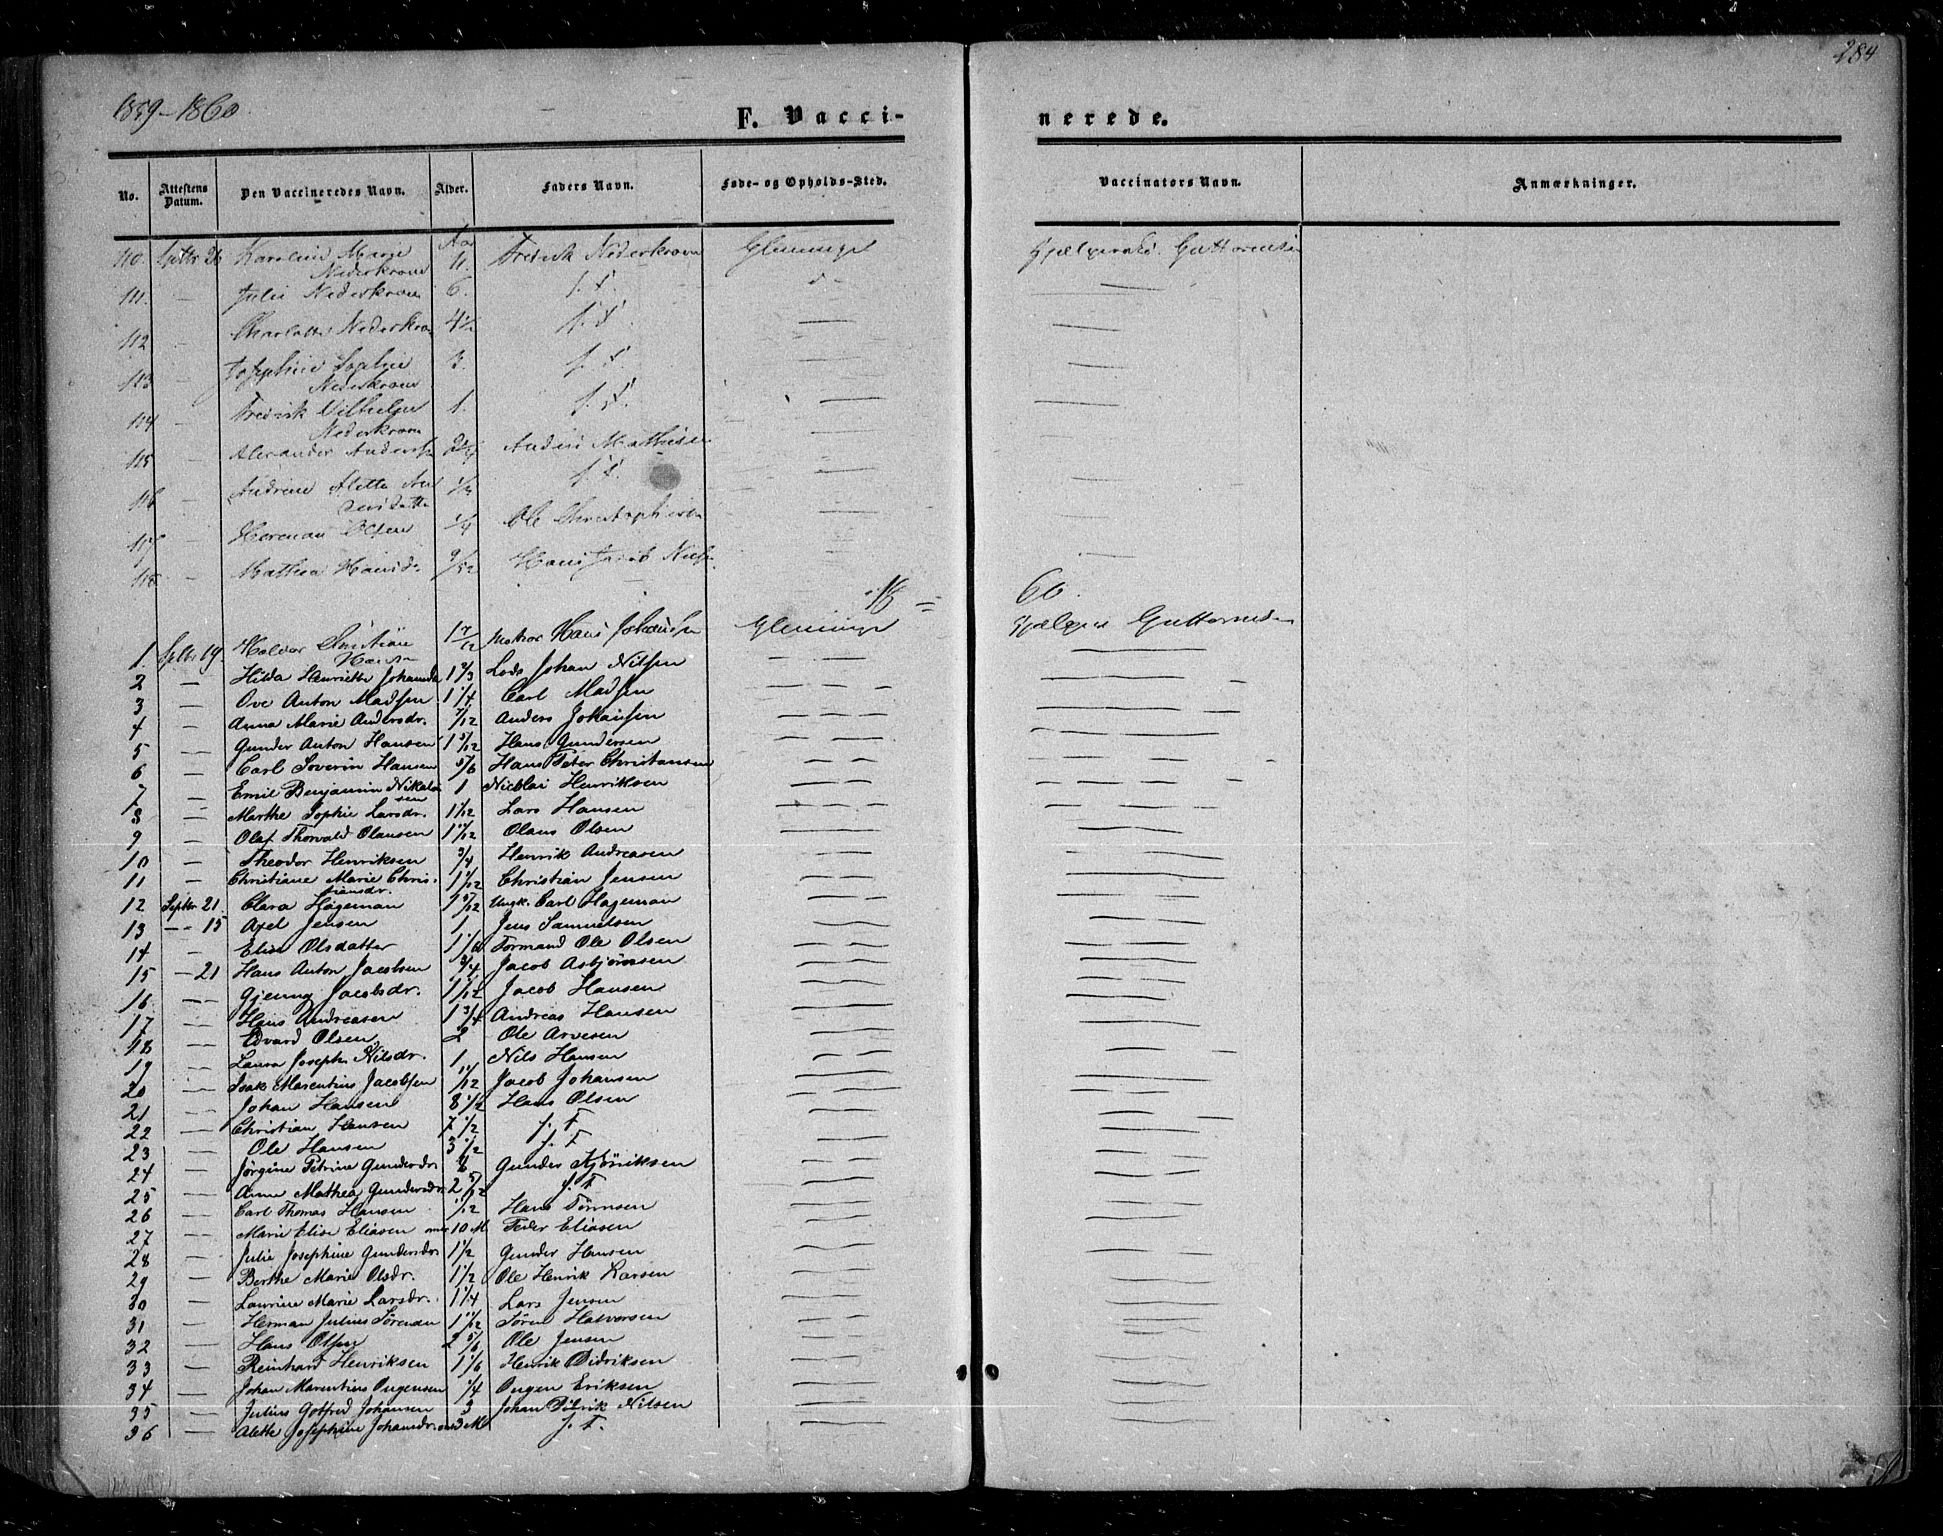 284
1859–1860
F. Vacci-
nerede.
No.
Attestens Datum.
Den Vaccineredes Navn.
Alder.
Faders Navn.
Føde- og Opholds-Sted.
Vaccinators Navn.
Anmærkninger.
110. Septbr 26 Karoline Marie Nederkroon Aar 11. Fredrik Nederkroon Glemminge Guttormsen
111. — Julie Nederkroon 6. s. F. d -
112 — Charlotte Nederkroon 4½ s. F.
113 — Josephine Sophie Nederkroon 3. s. F.
114 — Fredrik Vilhelm Nederkroon 1. s. F.
115 — Alexander Anders 2 Anders Mathisen
116 — Andrine Alette An dersdatter s. F.
117 — Herman Olsen ¼ Ole Christophersen
118 — Mathea Hansd. 9/12 Hans Jacob Niels
18 60.
1. Septbr 19. Halvor Christian Han 1 Matros Hans Johansen Glemminge Guttormsen
2 — Hilda Henriette Johansd 1 Lods Johan Nilsen
3 — Ove Anton Madsen 1 ¼ Carl Madsen
4 — Anna Marie Andersdr. 7/12 Anders Johansen
5 — Gunder Anton Hansen 1 5/12 Hans Gundersen
6 — Carl Severin Hansen 5/6 Hans Peter Christansen
7 — Emil Benjamin Nikolai sen 1 Nicolai Henriksen
8 — Marthe Sophie Larsdr. 1 1/12 Lars Hansen
9 — Olaf Thorvald Olausen 1 Olaus Olsen
10 — Theodor Henriksen ¾ Henrik Andreasen
11 — Christiane Marie Chris- tiansdr. 1 Christian Jensen
12 Septbr 21. Clara Hageman 1 5/12 Ungk. Carl Hageman
13 — 15 Axel Jensen 1 Jens Samuelsen
14 — Elise Olsdatter 1 Formand Ole Olsen
15 — 21 Hans Anton Jacobsen ¾ Jacob Asbjørnsen
16. — Jacobsdr. 1 1/12 Jacob Hansen
17 — Hans Andreasen 1 ¾ Andreas Hansen
18 — Edvard Olsen 2 Ole Arvesen
19 — Laura Joseph. Nilsdr. 1 Nils Hansen
20 — Isak Marentius Jacobsen Jacob Johansen
21 — Johan Hansen 8 ½ Hans Olsen
22 — Christian Hansen 7 ½ s. F
23 — Ole Hansen 3 ½ s. F
24 — Jørgine Petrine Gundersdr 6 Gunder
25 — Anne Mathea Gundersdr. 2 5/12 s. F
26 — Carl Thomas Hansen Hans
27 — Marie Elise Eliasen 10 M Peder Eliasen
28 — Julie Josephine Gundersdr 1 ½ Gunder Hansen
29 — Berthe Marie Olsdr. 1 ½ Ole Henrik Larsen
30 — Laurine Marie Larsdr. 1 ¼ Lars Jensen
31 — Herman Julius Sørensen 1 Søren Halvorsen
32 — Hans Olsen 2 5/6 Ole Jensen
33 — Reinhard Henriksen 1 1/6 Henrik Didriksen
34 — Johan Marentius Ougensen ¼ Ougen Eriksen
35 — Julius Gotfred Johansen 3 Johan Didrik Nilsen
36 — Alette Josephine Johansdr. 3 M s. F.